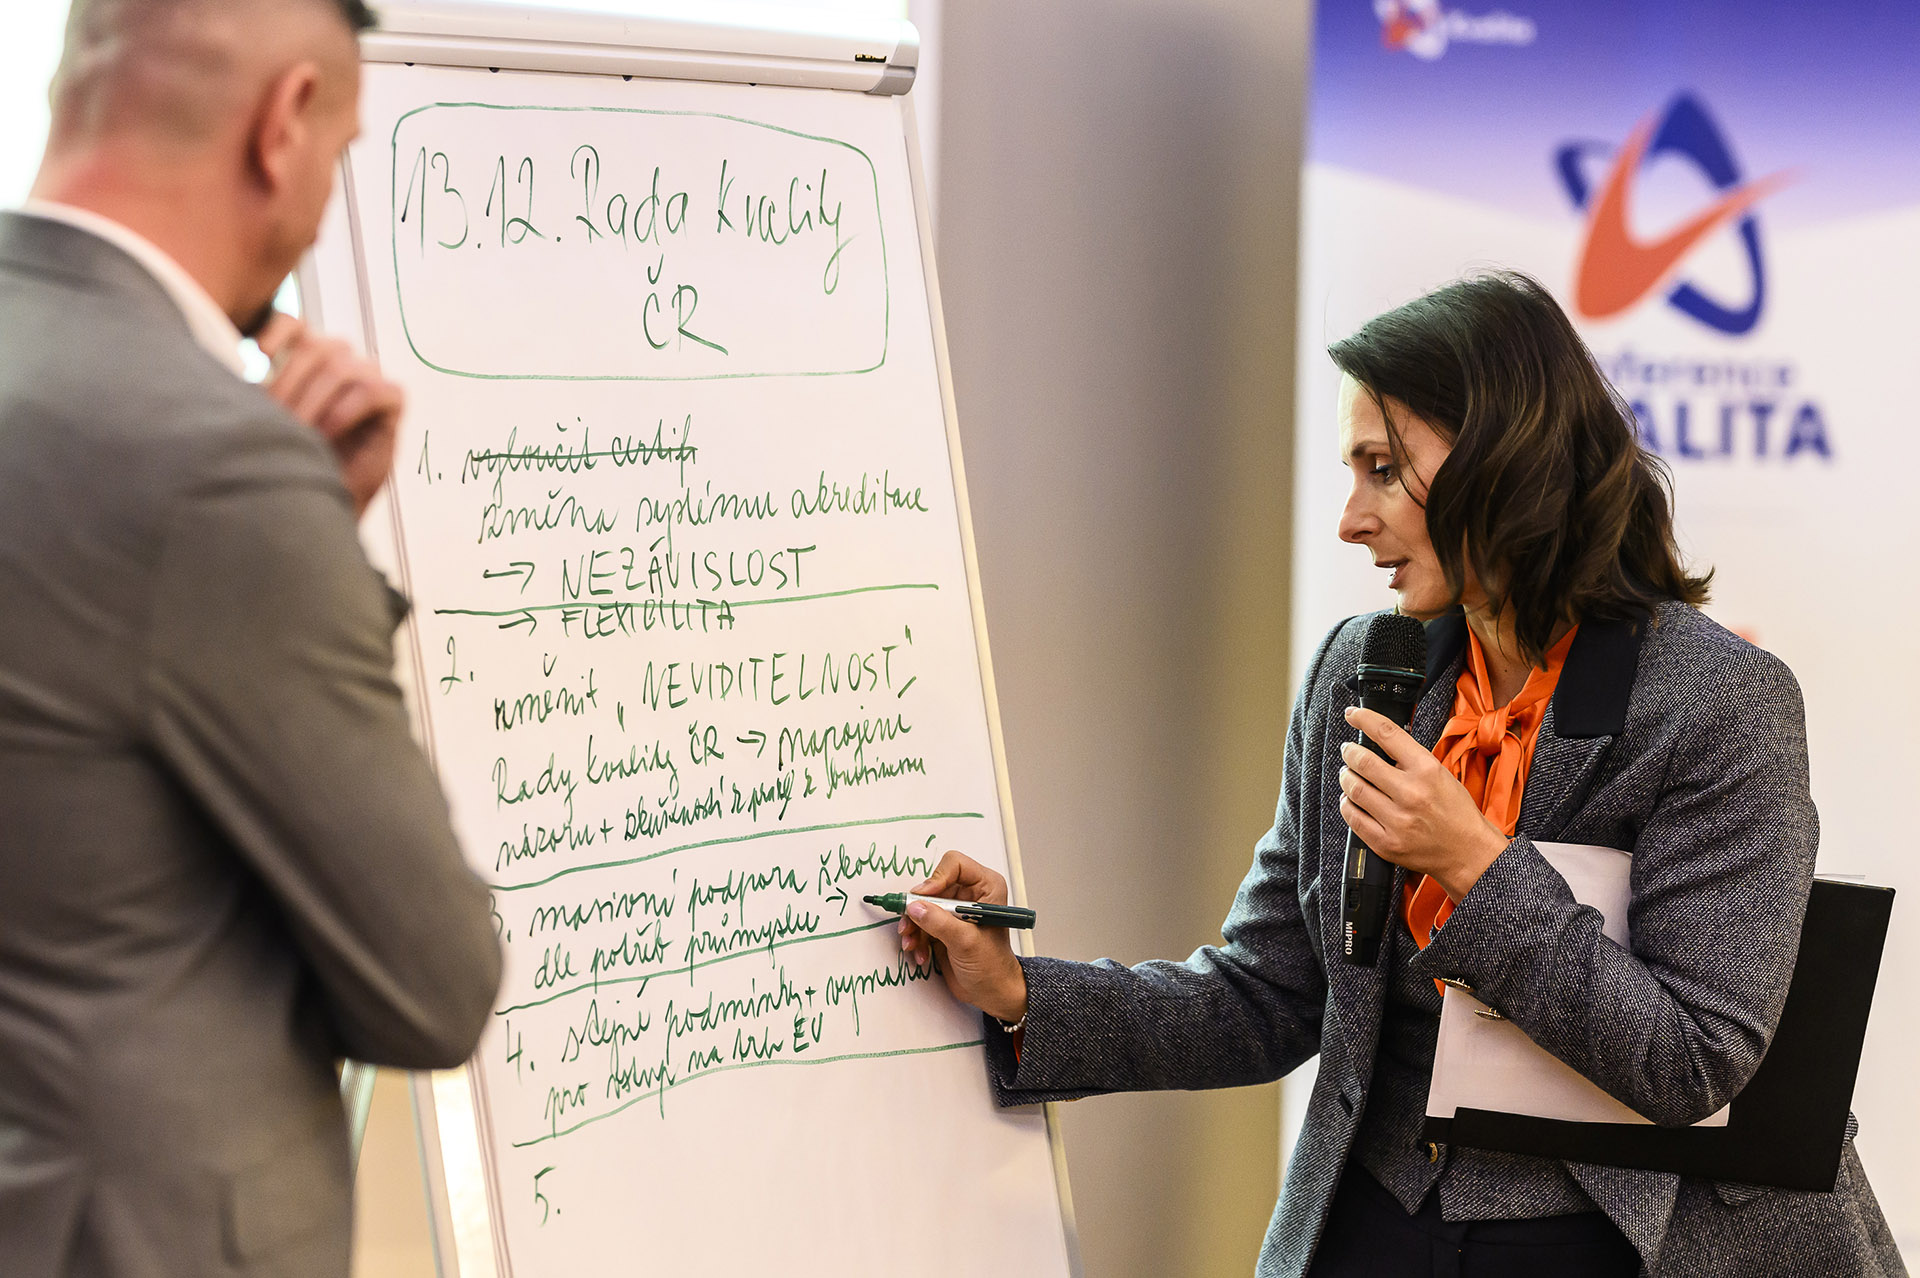 13.12. Rada kvality
ČR
1. vyloučit certifi
změna systému akreditace
→ NEZÁVISLOST
→ FLEXIBILITA
2. změnit „NEVIDITELNOST"
Rady kvality ČR → napojení
názoru + zkušeností z praxe z businessu
3. masivní podpora školství
dle potřeb průmyslu →
4. stejné podmínky + vymáhat
pro vstup na trh EU
5.
Kvalita
nference
ALITA
MIPRO